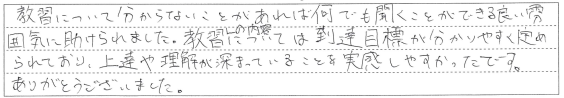 教習について分からないことがあれば何でも聞くことができる良い雰
囲気に助けられました。教習の内容については到達目標が分かりやすく定め
られており、上達や理解が深まっていることを実感しやすかったです。
ありがとうございました。